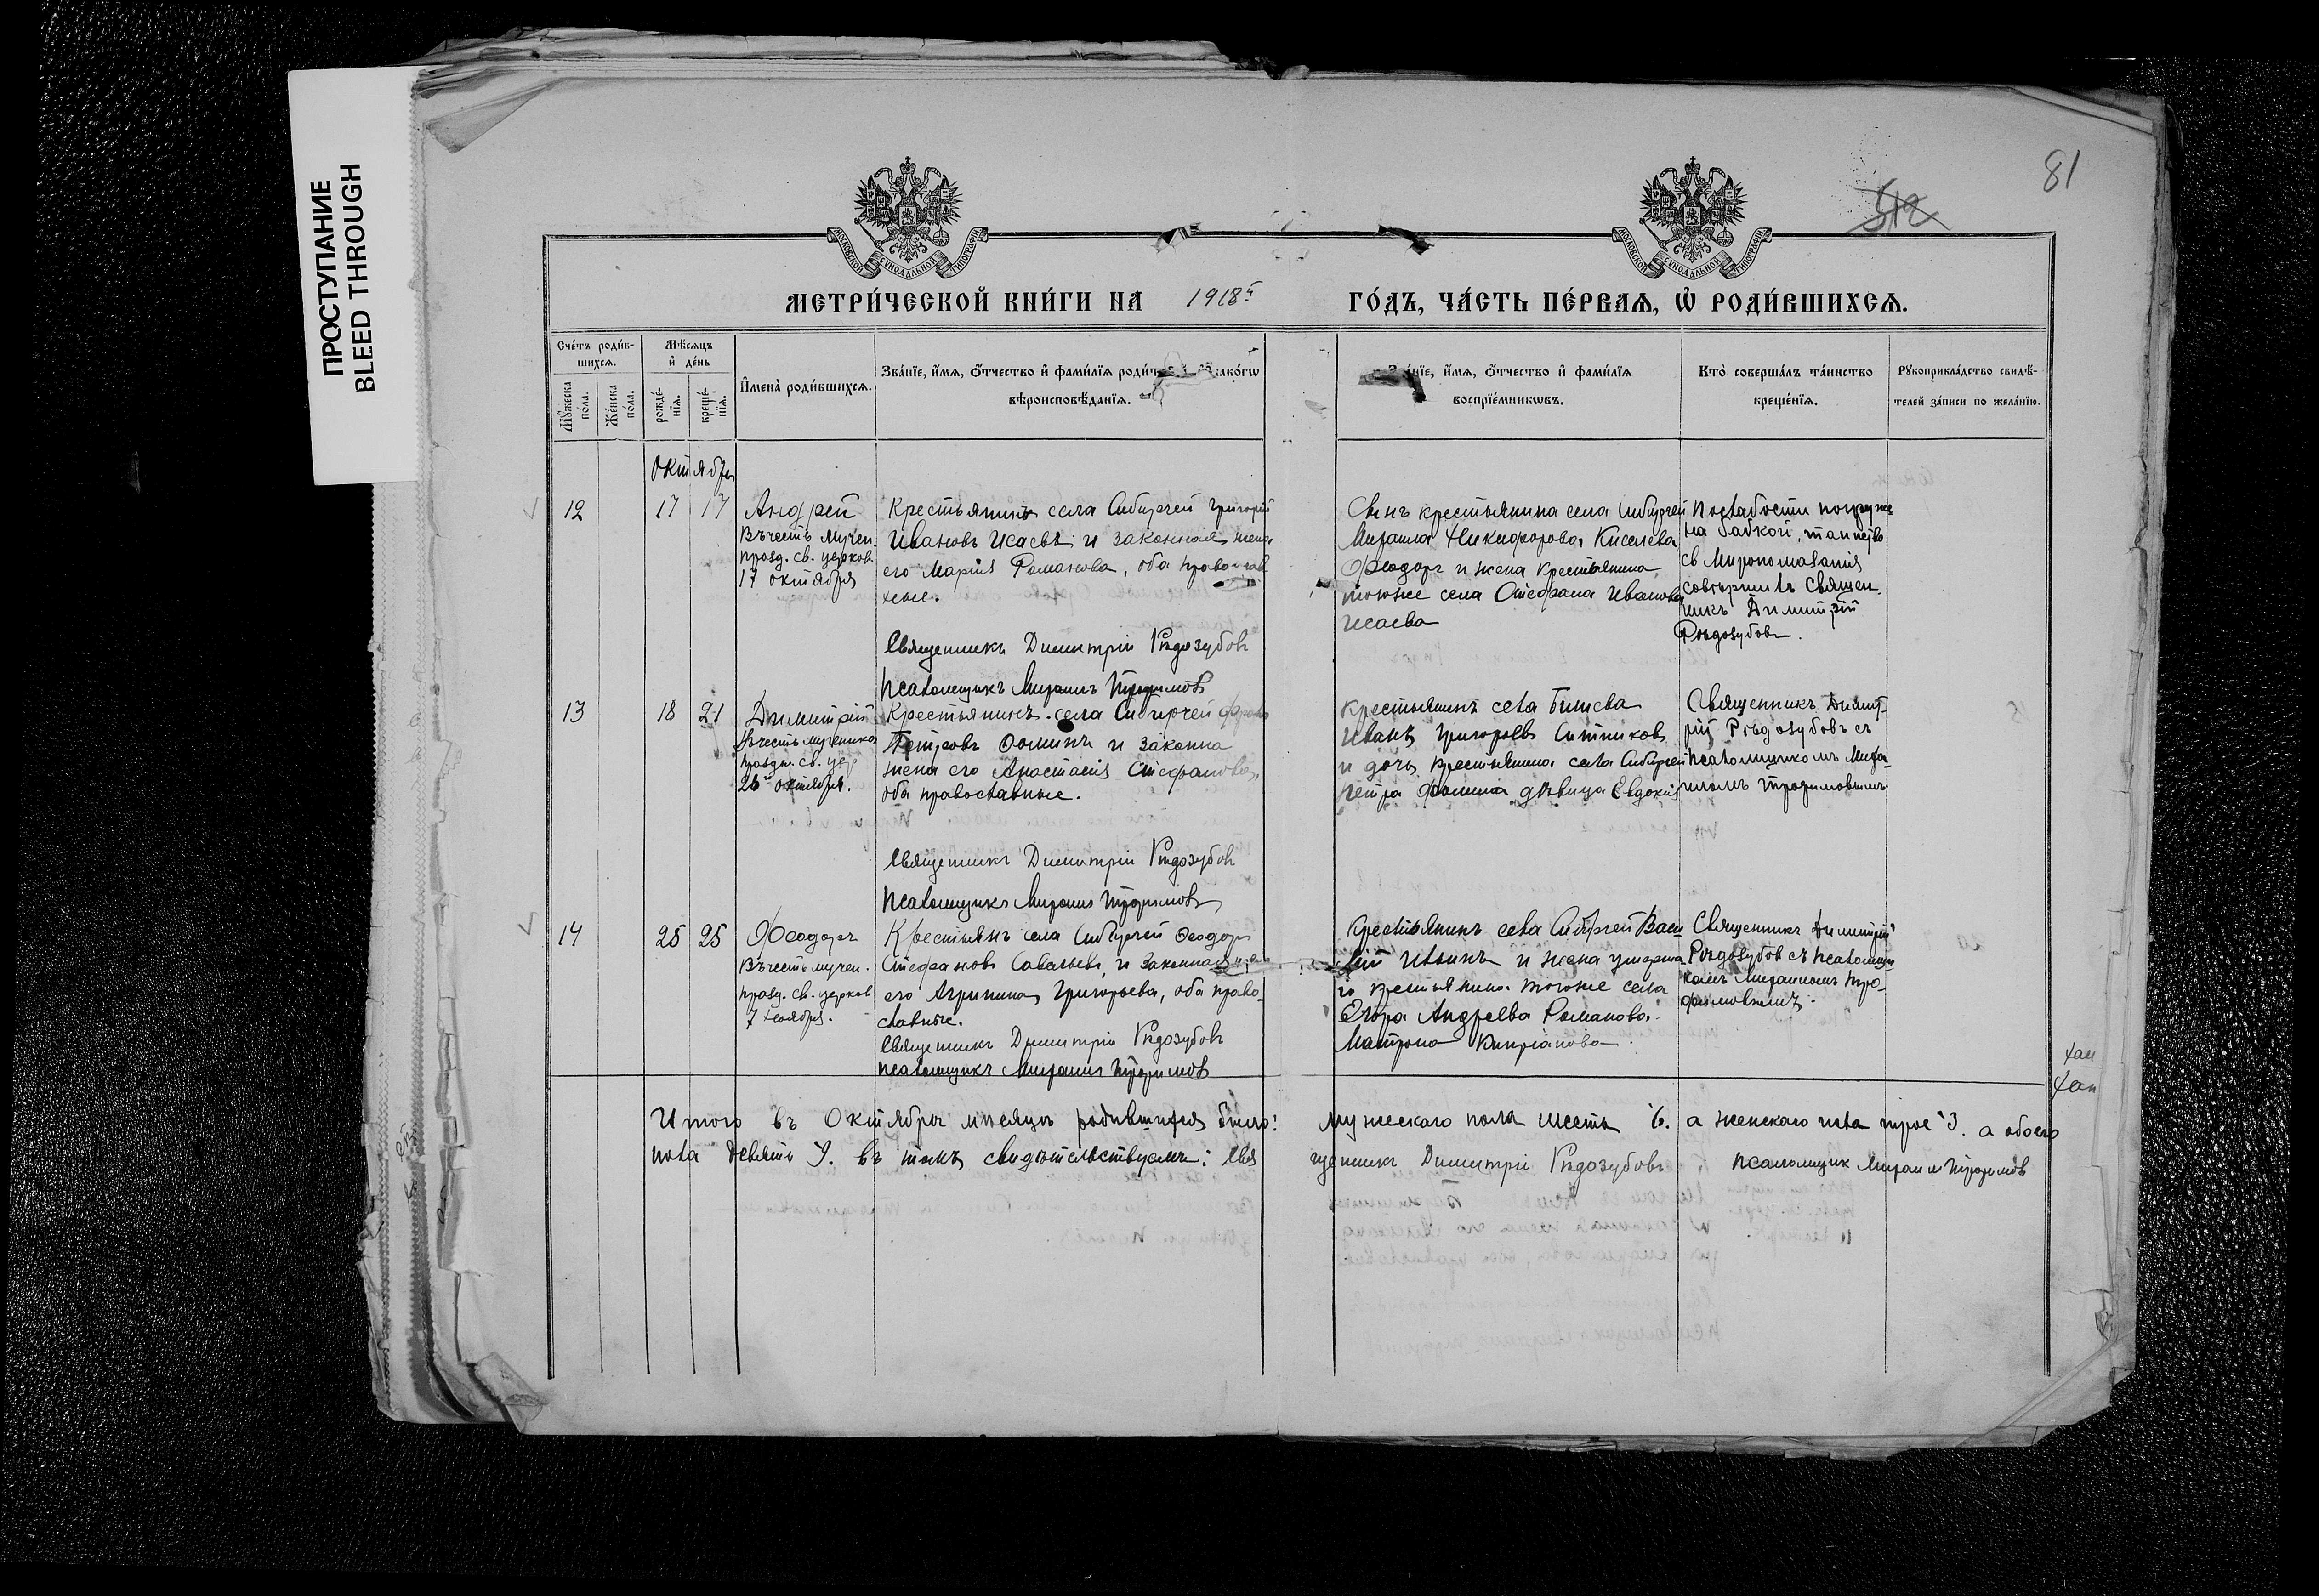 ПРОСТУПАНИЕ
BLEED THROUGH
81
512
МОСКОВСКОЙ СѴНОДАЛЬНОЙ ТИПОГРАФІИ
МОСКОВСКОЙ СѴНОДАЛЬНОЙ ТИПОГРАФІИ
МЕТРИ́ЧЕСКОЙ КНИ́ГИ НА 1918 г ГО́ДЪ, ЧА́СТЬ ПЕ́РВАѦ, Ѡ҆ РОДИ́ВШИХСѦ.
Сче́тъ роди́в-
шихсѧ.
Мꙋ́жеска
по́ла.
Же́нска
по́ла.
Мѣ́сѧцъ
и҆ де́нь
рожде́-
нїѧ.
креще́-
нїѧ.
И҆мена̀ роди́вшихсѧ.
Зва́нїе, и҆́мѧ, ѻ҆́тчество и҆ фами́лїѧ
вѣроисповѣ́данїѧ.
Зва́нїе, и҆́мѧ, ѻ҆́тчество и҆ фами́лїѧ
воспрїе́мникѡвъ.
Кто̀ соверша́лъ та́инство
креще́нїѧ.
Рꙋкоприкла́дство свидѣ́-
телей за́писи по жела́нїю.
Октябрь
12
17
17
Андрей
Въ честь мучен.
празд. св. церков.
17 октября
Крестьянинъ села Сибирчей Григорій
Ивановъ Исаевъ и законная жена
его Марія Романова, оба православ
ные.
Священникъ Димитрій Рѣдозубовъ
Псаломщикъ Михаилъ Трофимовъ
Сынъ крестьянина села Сибирчей
Михаила Никифорова Киселева
Ѳеодоръ и жена крестьянина
тогоже села Стефана Иванова
Исаева
По слабости погруже
на бабкой, таинство
св Миропомазанія
совершилъ Священ
никъ Димитрій
Рѣдозубовъ.
13
18
21
Димитрій
Въ честь мученика
праздн. св. цер
26 октября.
Крестьянинъ села Сибирчей
Петровъ Ѳоминъ и законна
жена его Анастасія Стефанова,
оба православные.
Священникъ Димитрій Рѣдозубовъ
Псаломщикъ Михаилъ Трофимовъ
Крестьянинъ села Бишева
Иванъ Григорьевъ Ситниковъ
и дочь крестьянина села Сибирчей
Петра Ѳомина дѣвица Евдокія
Священникъ Димит
рій Рѣдозубовъ съ
псаломщикомъ Миха
иломъ Трофимовымъ
14
25
25
Ѳеодоръ
Въ честь мучен.
празд. св. церков
7 ноября.
Крестьянъ села Сибирчей Ѳеодоръ
Стефановъ Савельевъ, и законная
его Агрипина Григорьева, оба право-
славные.
Священникъ Димитрій Рѣдозубовъ
Псаломщикъ Михаилъ Трофимовъ
Крестьянинъ села Сибирчей Васи
лій Ильинъ и жена умерша
го крестьянина тогоже села
Егора Андреева Романова
Матрона Кипріанова
Священникъ Димитрій
Рѣдозубовъ съ псаломщи
комъ Михаиломъ Тро-
фимовымъ.
Итого въ Октябрѣ мѣсяцѣ родившихся было: мужескаго пола шесть 6. а женскаго пола трое 3. а обоего
пола девять 9. въ томъ свидѣтельствуемъ: Свя щенникъ Димитрій Рѣдозубовъ Псаломщик Михаилъ Трофимовъ